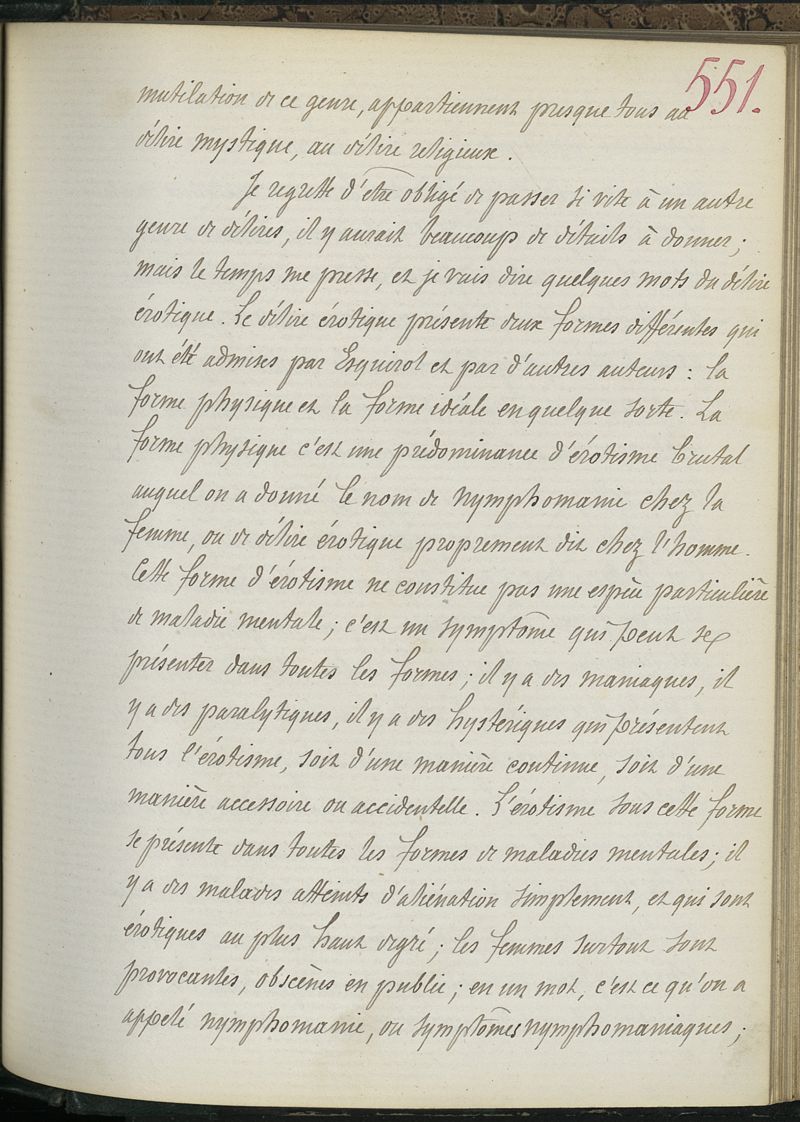 551.
mutilation de ce genre, appartiennent presque tous au
délire mystique, au délire religieux.
Je regrette d'être obligé de passer si vite à un autre
genre de délires, il y aurait beaucoup de détails à donner;
mais le temps me presse, et je vais dire quelques mots du délire
érotique. Le délire érotique présente deux formes différentes qui
ont été admises par Esquirol et par d'autres auteurs : la
forme physique et la forme idéale en quelque sorte. La
forme physique c'est une prédominance d'érotisme brutal
auquel on a donné le nom de nymphomanie chez la
femme, ou de délire érotique proprement dit chez l'homme.
Cette forme d'érotisme ne constitue pas une espèce particulière
de maladie mentale; c'est un symptôme qui peut se
présenter dans toutes les formes; il y a des maniaques, il
y a des paralytiques, il y a des hystériques qui présentent
tous l'érotisme, soit d'une manière continue, soit d'une
manière accessoire ou accidentelle. L'érotisme sous cette forme
se présente dans toutes les formes de maladies mentales; il
y a des malades atteints d'aliénation simplement, et qui sont
érotiques au plus haut degré; les femmes surtout sont
provocantes, obscènes en public; en un mot, c'est ce qu'on a
appelé nymphomanie, ou symptômes nymphomaniaques;